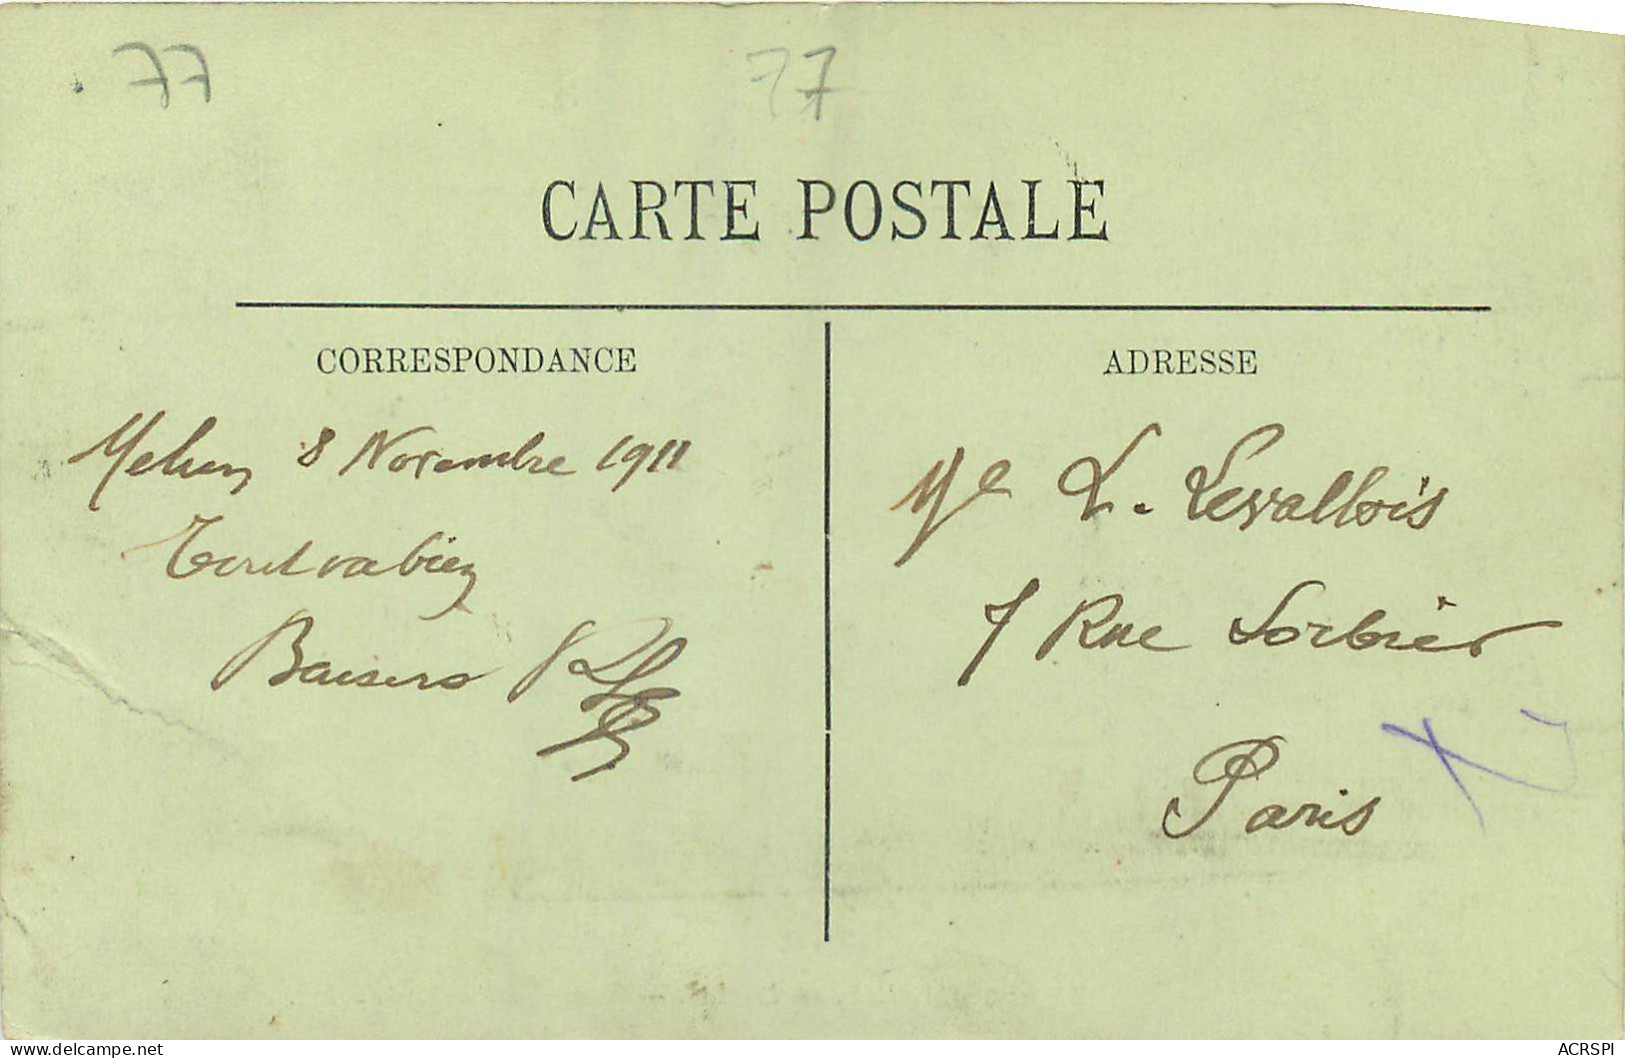 77
77
CARTE POSTALE
CORRESPONDANCE
Melun 8 Novembre 1911
Tout va bien
Baisers
ADRESSE
Me L. Levallois
7 Rue Sorbier
Paris
www.delcampe.net
ACRSPI